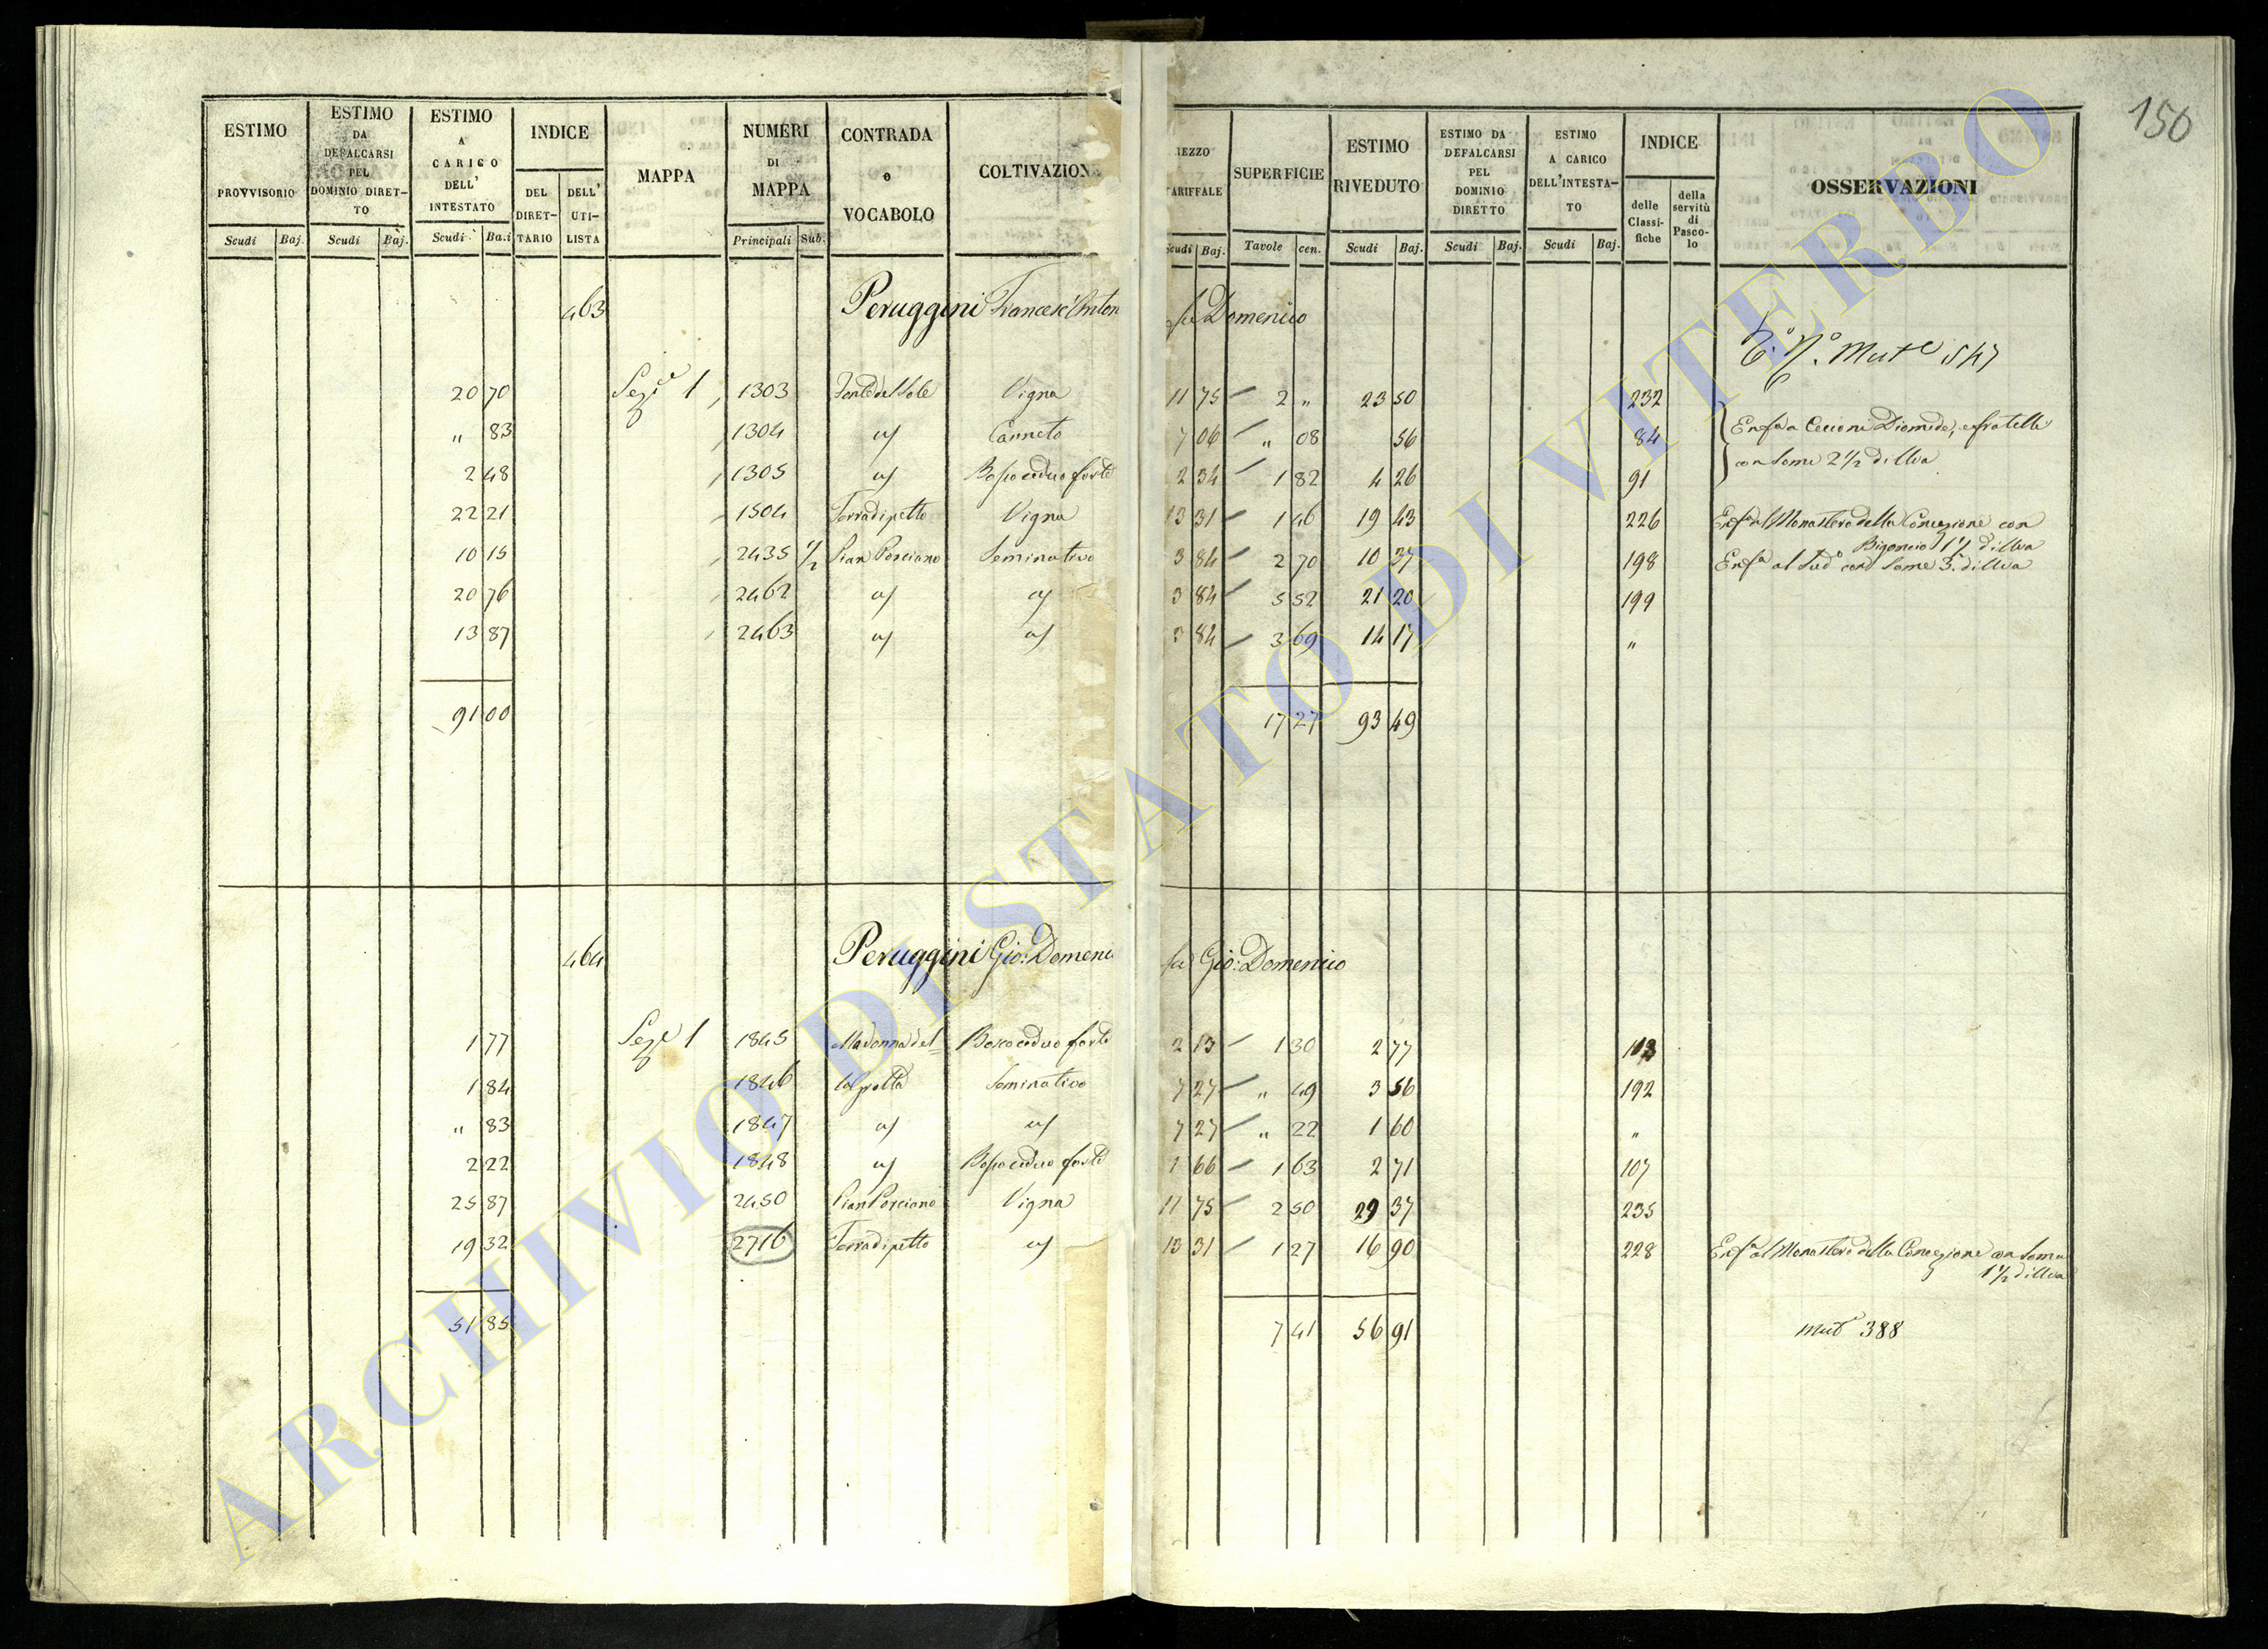 150
ESTIMO PROVVISORIO
ESTIMO DA DEFALCARSI PEL DOMINIO DIRETTO
ESTIMO A CARICO DELL' INTESTATO
INDICE
DEL DIRETTARIO
DELL' UTILISTA
MAPPA
NUMERI DI MAPPA
CONTRADA o VOCABOLO
COLTIVAZION
REZZO TARIFFALE
SUPERFICIE
ESTIMO RIVEDUTO
ESTIMO DA DEFALCARSI PEL DOMINIO DIRETTO
ESTIMO A CARICO DELL'INTESTATO
INDICE
delle Classifiche
della servitù di Pascolo
OSSERVAZIONI
Scudi Baj. Scudi Baj. Scudi Ba.i Principali Sub. Scudi Baj. Tavole cen. Scudi Baj. Scudi Baj. Scudi Baj.
463 Peruggini Francesc'Anton fu Domenico
Mut.e 547
20 70 Sez.e 1 1303 Fonte del Sole Vigna 11 75 2 " 23 50 232
" 83 1304 a/ Canneto 7 06 " 08 56 84 Enf.a a Cecioni Diomede, e fratelli
2 48 1305 a/ Bosco ceduo forte 2 34 1 82 4 26 91 con Some 2 1/2 di Uva
22 21 1504 Terra di petto Vigna 13 31 1 46 19 43 226 Enf.a al Monastero della Concezione con
Bigoncio 1 1/2 di Uva
10 15 2435 1/2 Pian Porciano Seminativo 3 84 2 70 10 37 198 Enf.a al Sud.o con Some 3. di Uva
20 76 2462 a/ a/ 3 84 5 52 21 20 199
13 87 2463 a/ a/ 3 84 3 69 14 17 "
91 00 17 27 93 49
464 Peruggini Gio: Domeni fu Gio: Domenico
1 77 Sez.e 1 1845 Madonna del= Bosco ceduo forte 2 13 1 30 2 77 103
1 84 1846 Seminativo 7 27 " 49 3 56 192
" 83 1847 a/ a/ 7 27 " 22 1 60 "
2 22 1848 a/ Bosco ceduo forte 1 66 1 63 2 71 107
25 87 2450 Pian Porciano Vigna 11 75 2 50 29 37 235
19 32 2716 Terra di petto a/ 13 31 1 27 16 90 228 Enf.a al Monastero della Concezione con Some
1 1/2 di Uva
51 85 7 41 56 91 Mut.e 388
ARCHIVIO DI STATO DI VITERBO